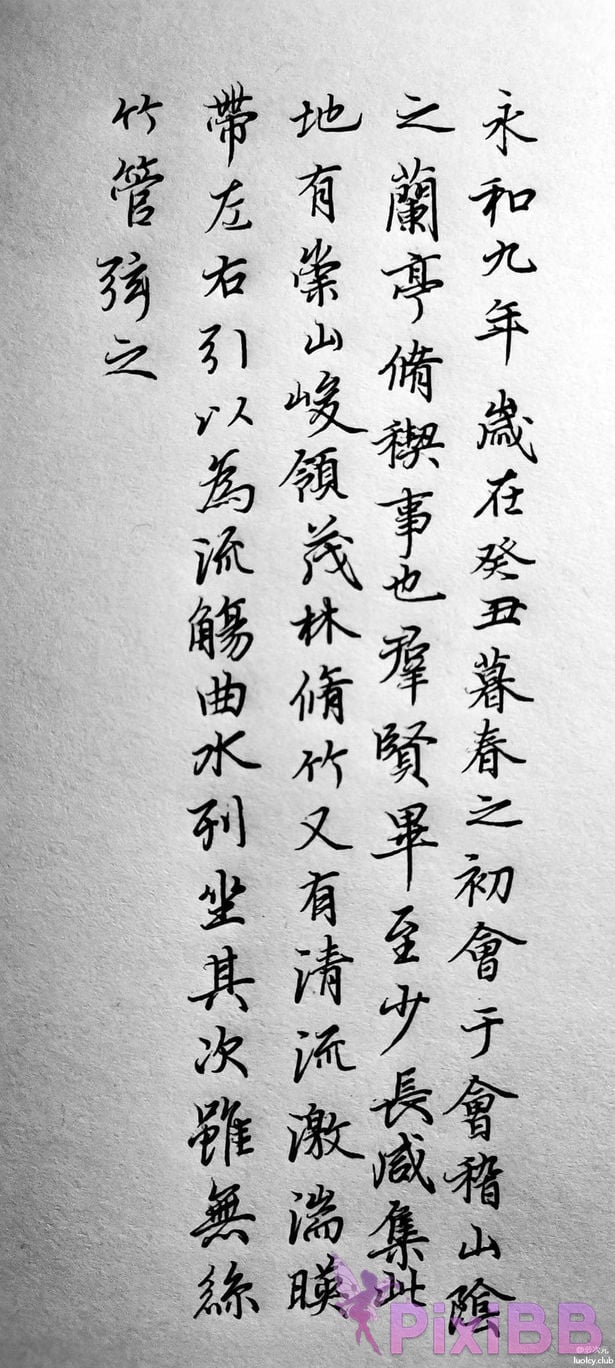 永和九年歲在癸丑暮春之初會于會稽山陰
之蘭亭脩禊事也羣賢畢至少長咸集此
地有崇山峻領茂林脩竹又有清流激湍暎
帶左右引以為流觴曲水列坐其次雖無絲
竹管弦之
PixiBB
luoky.club